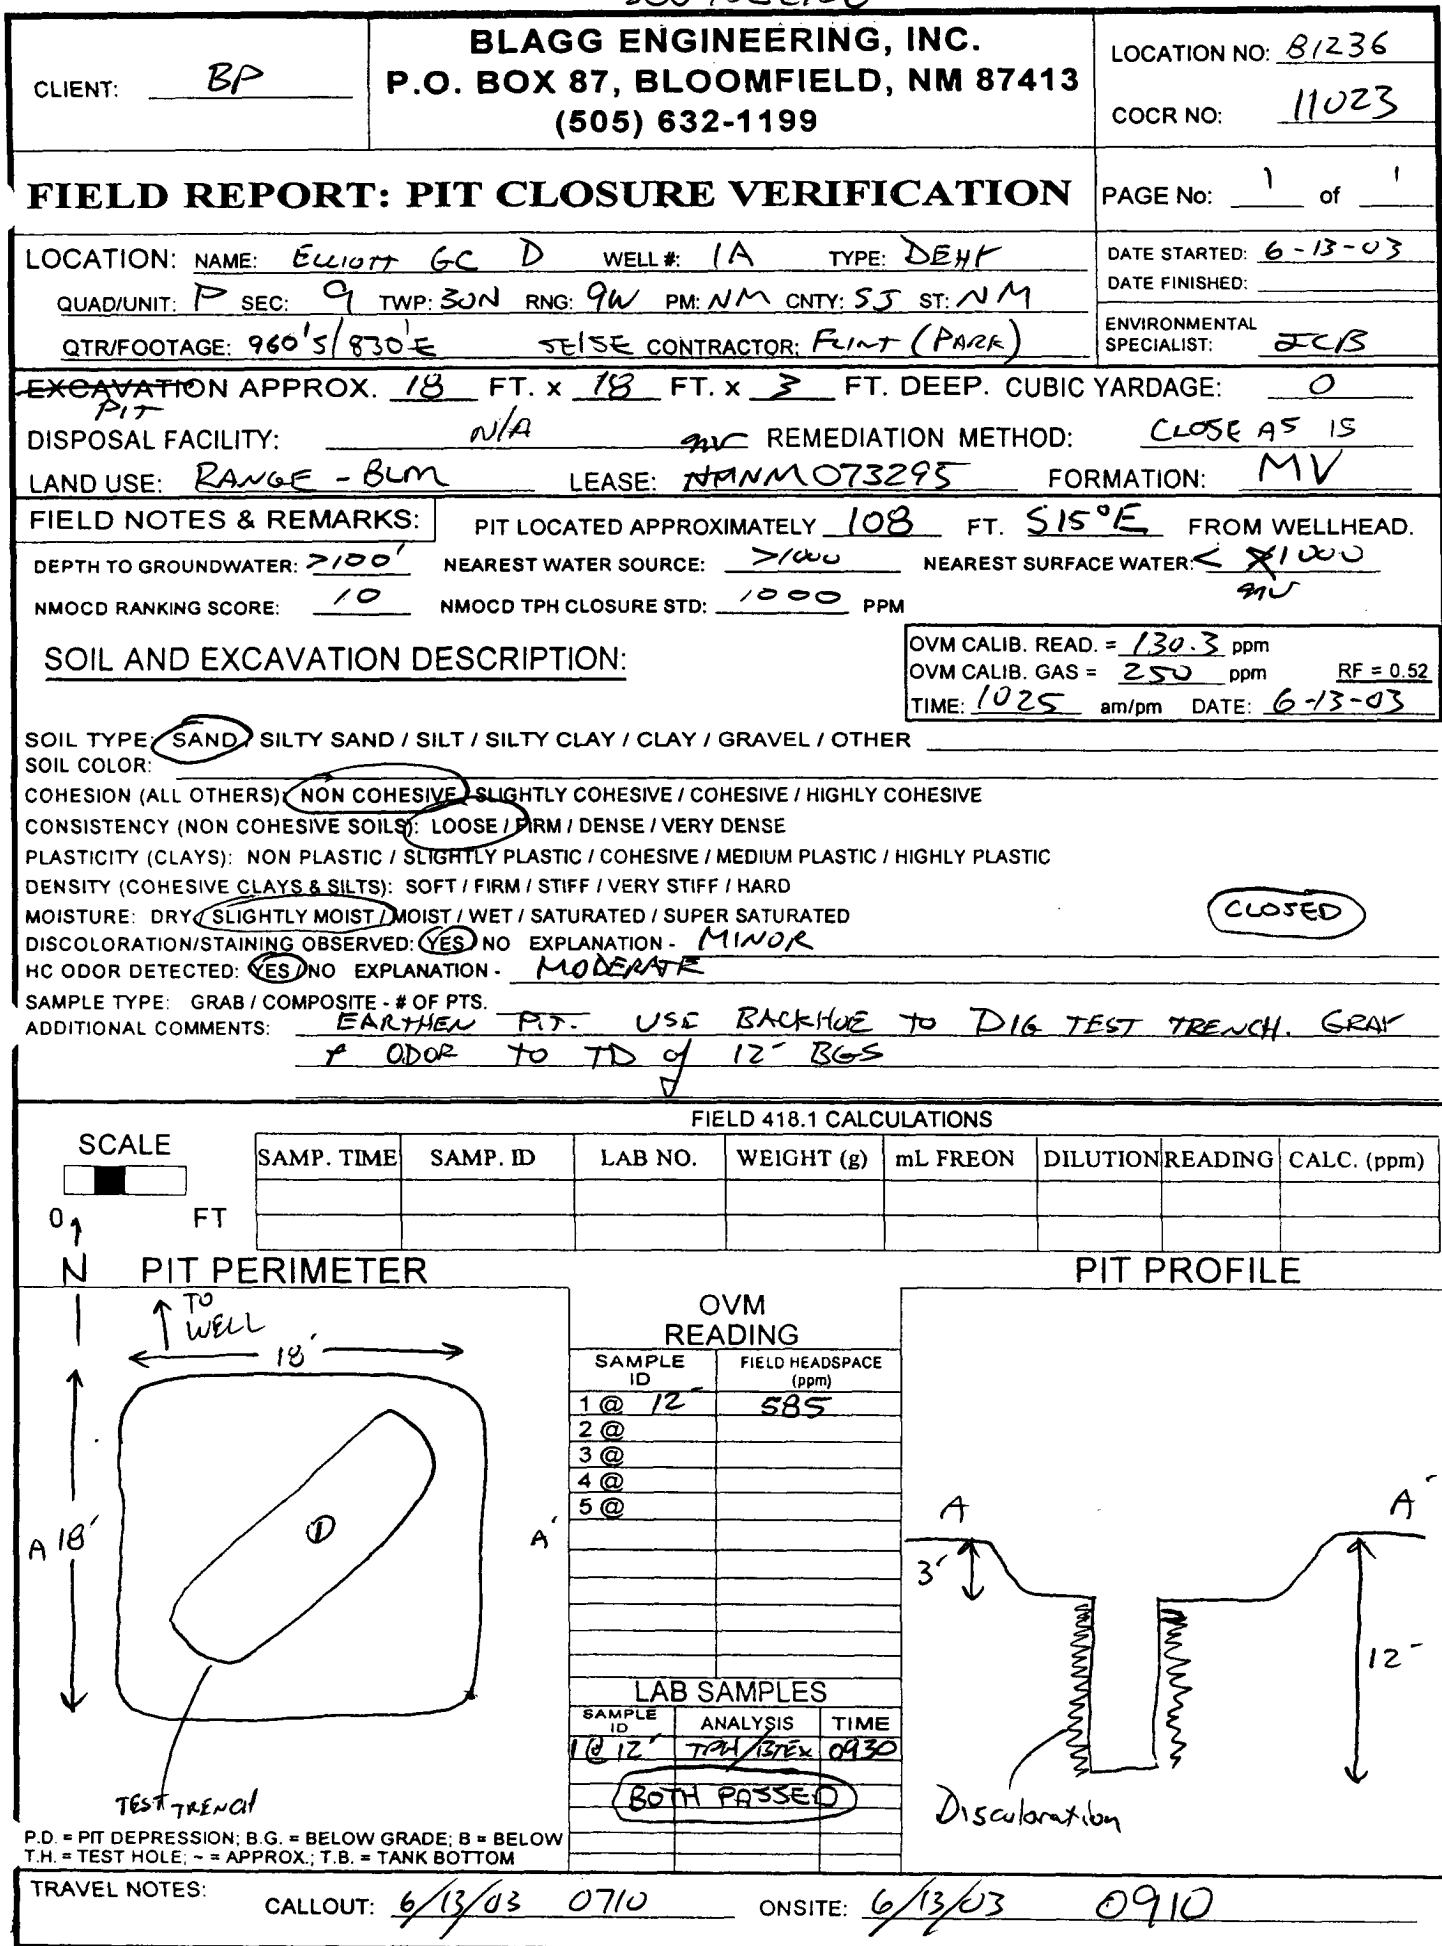 CLIENT: BP
BLAGG ENGINEERING, INC.
P.O. BOX 87, BLOOMFIELD, NM 87413
(505) 632-1199
LOCATION NO: B1236
COCR NO: 11023
FIELD REPORT: PIT CLOSURE VERIFICATION
PAGE No: 1 of 1
LOCATION: NAME: ELLIOTT GC D WELL #: 1A TYPE: DEHY
QUAD/UNIT: P SEC: 9 TWP: 30N RNG: 9W PM: NM CNTY: SJ ST: NM
QTR/FOOTAGE: 960'S/830'E SE/SE CONTRACTOR: FLINT (PARK)
DATE STARTED: 6-13-03
DATE FINISHED:
ENVIRONMENTAL
SPECIALIST: JCB
EXCAVATION APPROX. 18 FT. x 18 FT. x 3 FT. DEEP. CUBIC YARDAGE: 0
PIT
DISPOSAL FACILITY: N/A REMEDIATION METHOD: CLOSE AS IS
LAND USE: RANGE - BLM LEASE: NMNM073295 FORMATION: MV
FIELD NOTES & REMARKS: PIT LOCATED APPROXIMATELY 108 FT. S15°E FROM WELLHEAD.
DEPTH TO GROUNDWATER: >100' NEAREST WATER SOURCE: >1000 NEAREST SURFACE WATER: < 1000
NMOCD RANKING SCORE: 10 NMOCD TPH CLOSURE STD: 1000 PPM
SOIL AND EXCAVATION DESCRIPTION:
OVM CALIB. READ. = 130.3 ppm
OVM CALIB. GAS = 250 ppm RF = 0.52
TIME: 1025 am/pm DATE: 6-13-03
SOIL TYPE: SAND / SILTY SAND / SILT / SILTY CLAY / CLAY / GRAVEL / OTHER
SOIL COLOR:
COHESION (ALL OTHERS): NON COHESIVE / SLIGHTLY COHESIVE / COHESIVE / HIGHLY COHESIVE
CONSISTENCY (NON COHESIVE SOILS): LOOSE / FIRM / DENSE / VERY DENSE
PLASTICITY (CLAYS): NON PLASTIC / SLIGHTLY PLASTIC / COHESIVE / MEDIUM PLASTIC / HIGHLY PLASTIC
DENSITY (COHESIVE CLAYS & SILTS): SOFT / FIRM / STIFF / VERY STIFF / HARD
MOISTURE: DRY / SLIGHTLY MOIST / MOIST / WET / SATURATED / SUPER SATURATED
CLOSED
DISCOLORATION/STAINING OBSERVED: YES / NO EXPLANATION - MINOR
HC ODOR DETECTED: YES / NO EXPLANATION - MODERATE
SAMPLE TYPE: GRAB / COMPOSITE - # OF PTS.
ADDITIONAL COMMENTS: EARTHEN PIT. USE BACKHOE TO DIG TEST TRENCH. GRAY
+ ODOR TO TD of 12' BGS
FIELD 418.1 CALCULATIONS
SCALE
0 FT
SAMP. TIME SAMP. ID LAB NO. WEIGHT (g) mL FREON DILUTION READING CALC. (ppm)
N PIT PERIMETER
PIT PROFILE
TO
WELL
18'
A 18' A'
1
TEST TRENCH
OVM
READING
SAMPLE ID FIELD HEADSPACE (ppm)
1 @ 12' 585
2 @
3 @
4 @
5 @
LAB SAMPLES
SAMPLE ID ANALYSIS TIME
1 @ 12' TPH/BTEX 0930
BOTH PASSED
A A'
3'
12'
Discoloration
P.D. = PIT DEPRESSION; B.G. = BELOW GRADE; B = BELOW
T.H. = TEST HOLE; ~ = APPROX.; T.B. = TANK BOTTOM
TRAVEL NOTES: CALLOUT: 6/13/03 0710 ONSITE: 6/13/03 0910